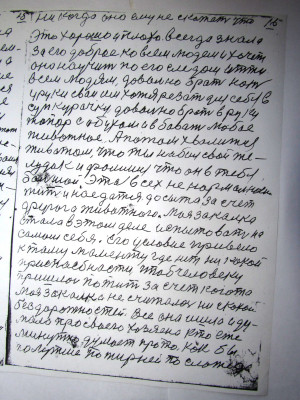 15 никогда оно ему не скажет, что 15
Это хорошо и плохо всегда знала
за его доброе ко всем людям и хочет
оно научить по его следом итти
всем людям, довольно брать кому
руки свои им хотя резать для себя в
суп курачку довольно брать в руку
топор с обухом и вбивать любое
животное. А потом хвалится
животом, что ты набил свой же-
лудок и
большой. Эта всех не нормальных
жить и наедатся досыта за счет
другого животного. Моя закалка
стала в этом деле испытовать на
самом себя. Его условие привело
к тому моменту где нет ни какой
чтоб человеку
пришлось пожить за счет кого то
Моя закалка не считалась ни с какой
бездарностей. Все она шла и ду-
мала про своего хозяена кто еже
минутно думает про то. Как бы
по лутше по